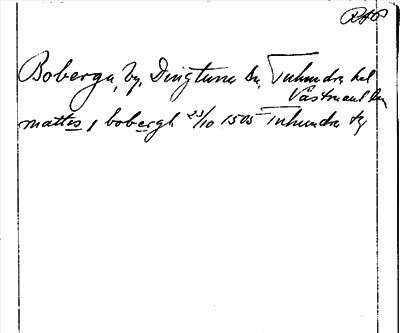 RAP
Boberga, by, Dingtuna sn, Tuhundra hd
Västmanl. län
mattis j bobergh 23/10 1505 Tuhundra tg